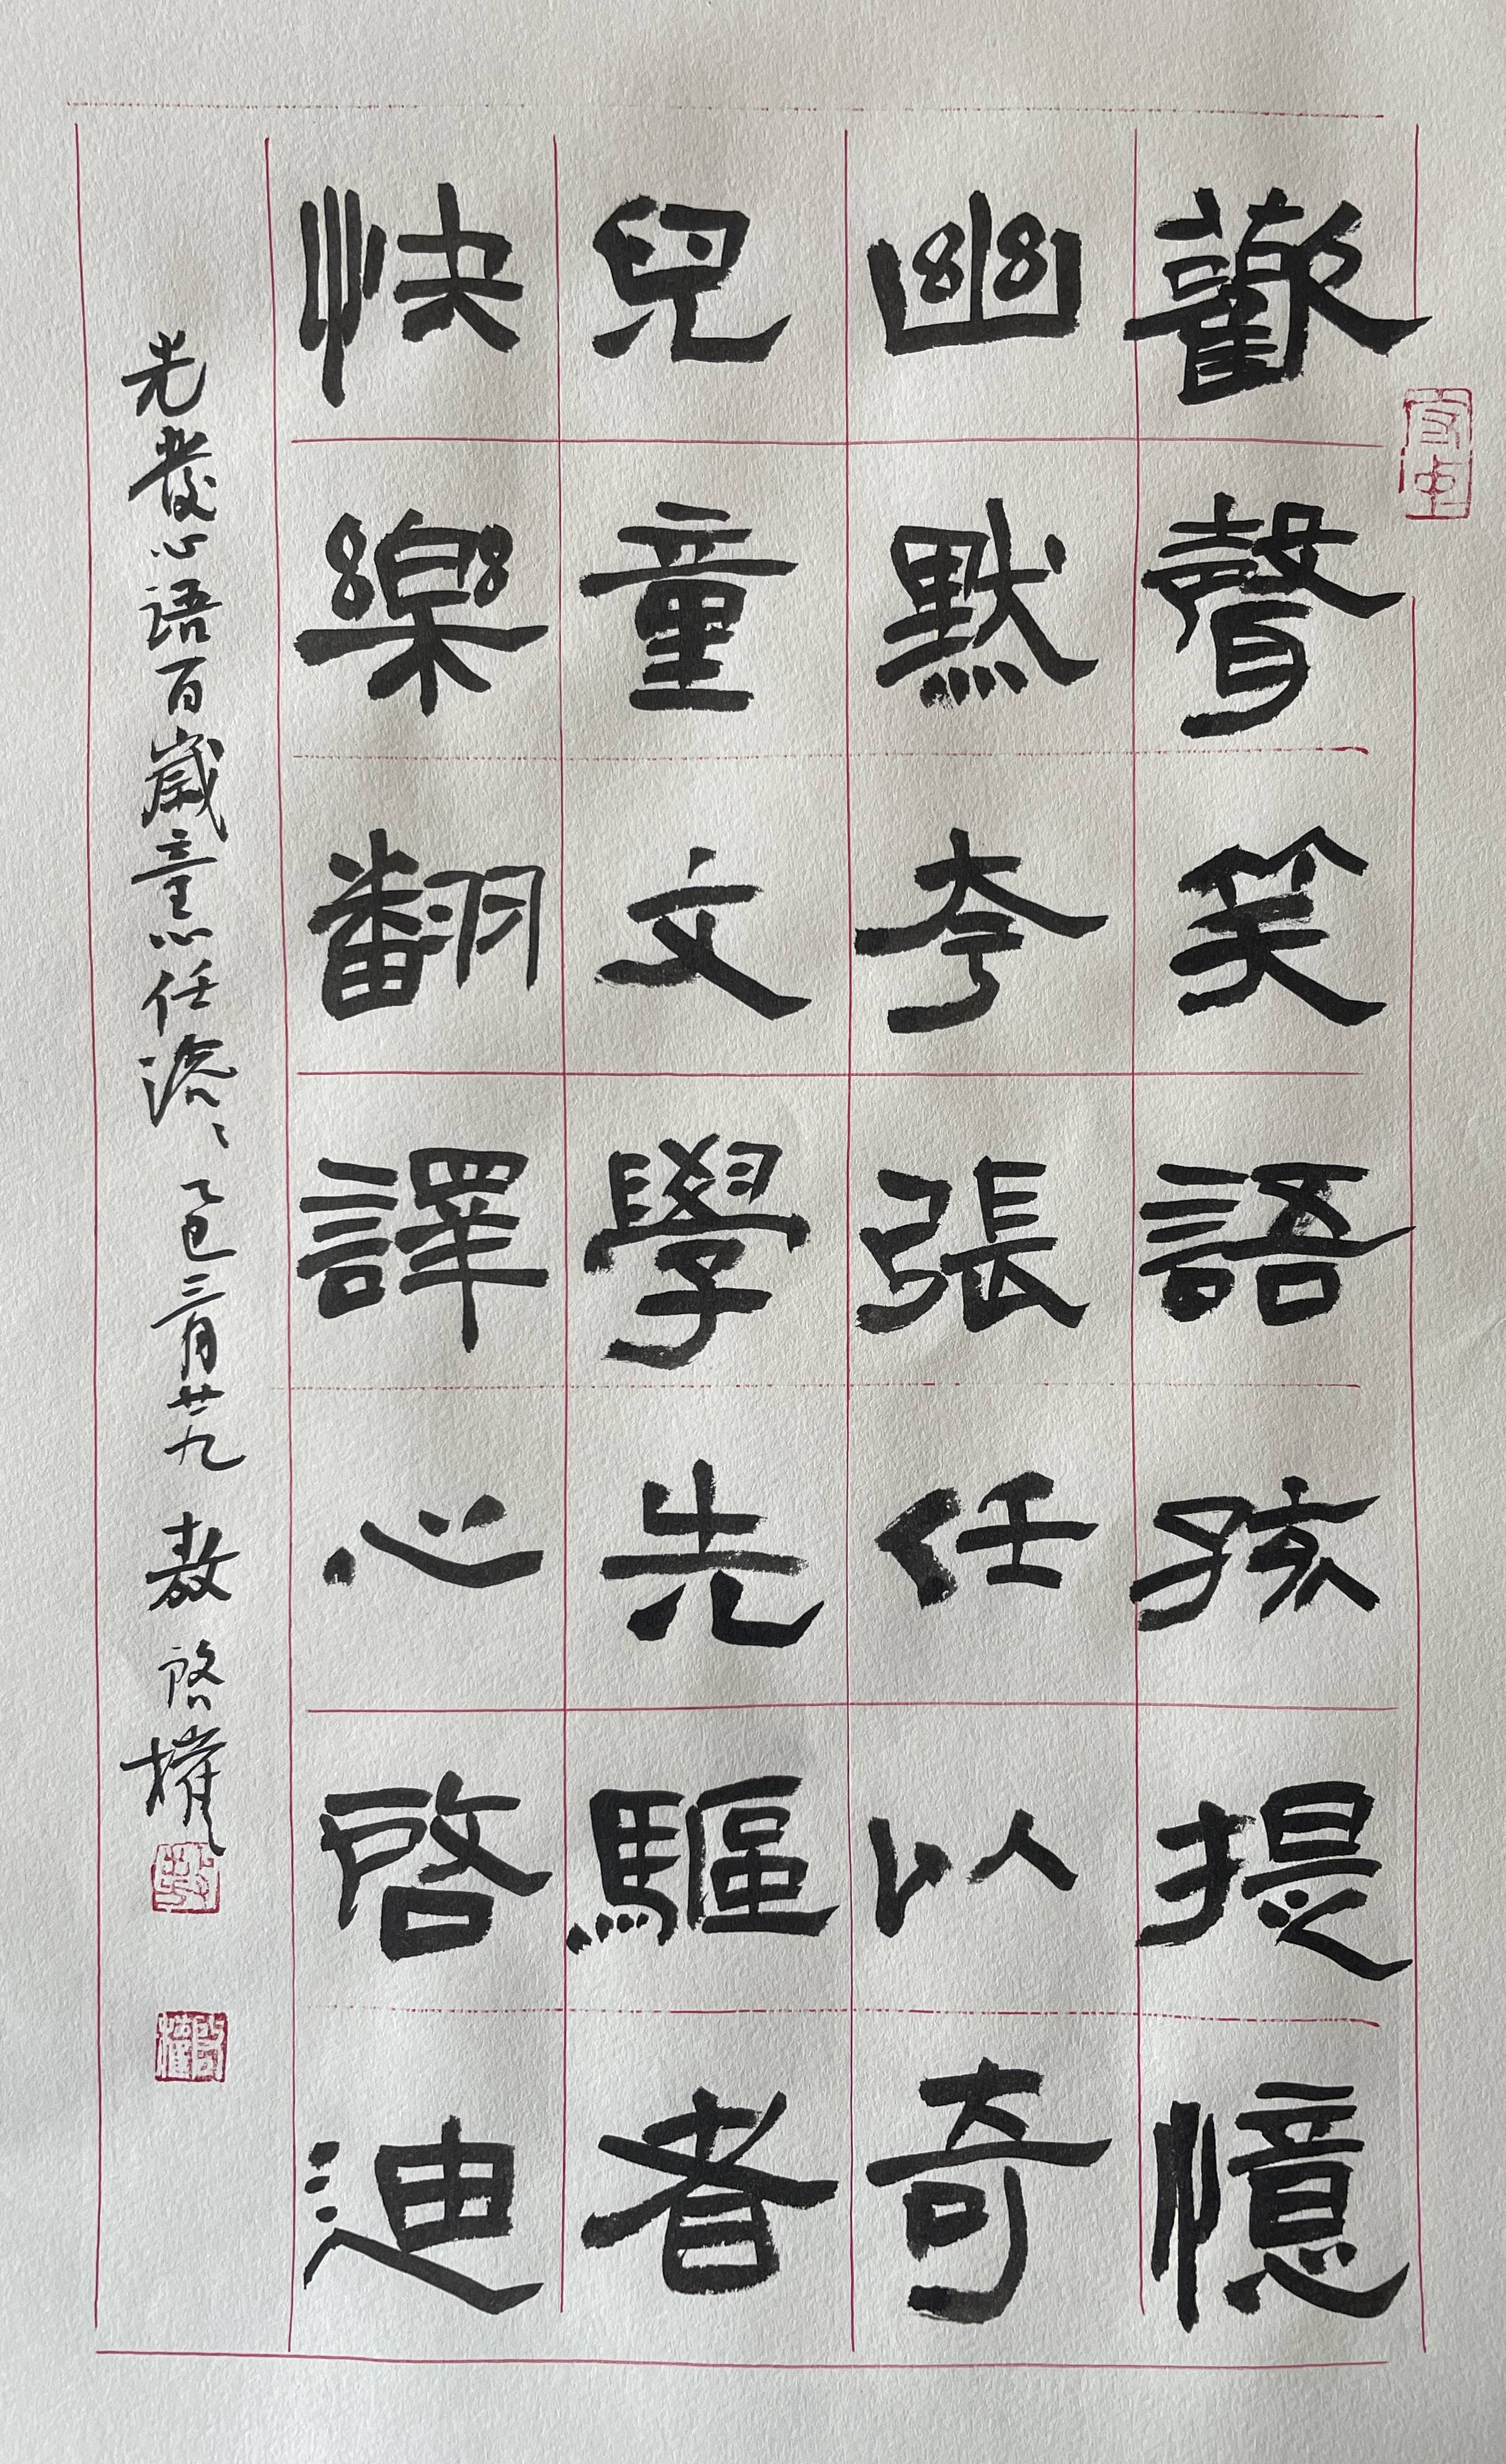 歡聲笑語孩提憶
幽默夸張任以奇
兒童文學先驅者
快樂翻譯心啓迪
光發心語百歲童心任溶溶乙巳三月廿九敖啓權